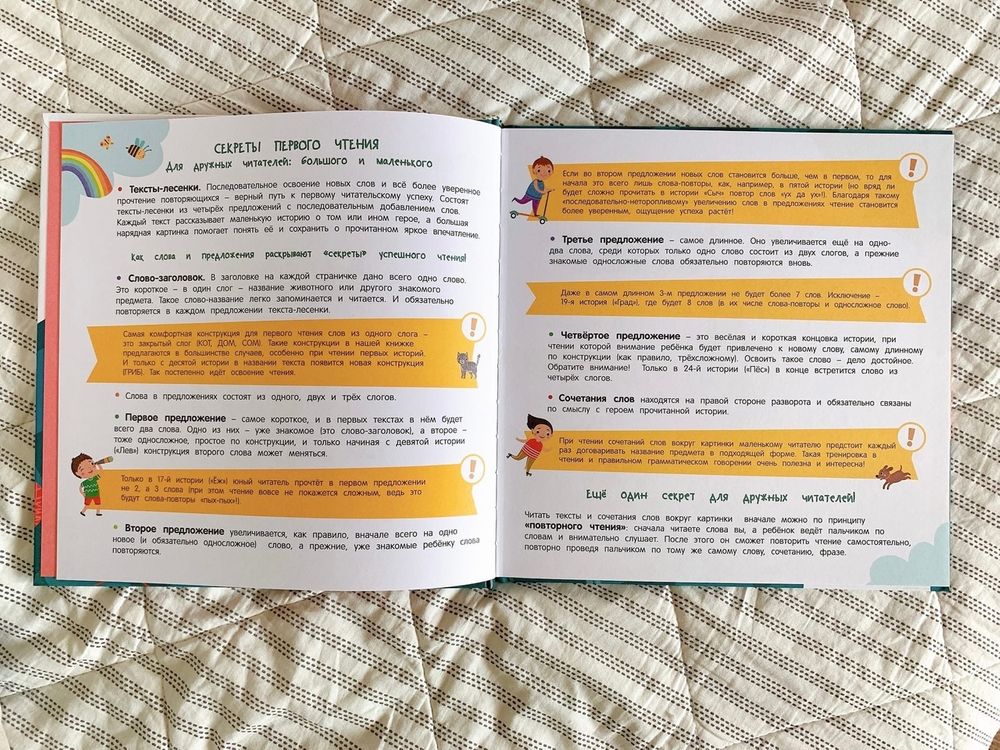 СЕКРЕТЫ ПЕРВОГО ЧТЕНИЯ
Для дружных читателей: большого и маленького
• Тексты-лесенки. Последовательное освоение новых слов и всё более уверенное
прочтение повторяющихся – верный путь к первому читательскому успеху. Состоят
тексты-лесенки из четырёх предложений с последовательным добавлением слов.
Каждый текст рассказывает маленькую историю о том или ином герое, а большая
нарядная картинка помогает понять её и сохранить о прочитанном яркое впечатление.
Как слова и предложения раскрывают «секреты» успешного чтения!
• Слово-заголовок. В заголовке на каждой страничке дано всего одно слово.
Это короткое – в один слог – название животного или другого знакомого
предмета. Такое слово-название легко запоминается и читается. И обязательно
повторяется в каждом предложении текста-лесенки.
Самая комфортная конструкция для первого чтения слов из одного слога –
это закрытый слог (КОТ, ДОМ, СОМ). Такие конструкции в нашей книжке
предлагаются в большинстве случаев, особенно при чтении первых историй.
И только с десятой истории в названии текста появится новая конструкция
(ГРИБ). Так постепенно идёт освоение чтения.
• Слова в предложениях состоят из одного, двух и трёх слогов.
• Первое предложение – самое короткое, и в первых текстах в нём будет
всего два слова. Одно из них – уже знакомое (это слово-заголовок), а второе –
тоже односложное, простое по конструкции, и только начиная с девятой истории
(«Лев») конструкция второго слова может меняться.
Только в 17-й истории («Ёж») юный читатель прочтёт в первом предложении
не 2, а 3 слова (при этом чтение вовсе не покажется сложным, ведь это
будут слова-повторы «пых-пых»!).
• Второе предложение увеличивается, как правило, вначале всего на одно
новое (и обязательно односложное) слово, а прежние, уже знакомые ребёнку слова
повторяются.
Если во втором предложении новых слов становится больше, чем в первом, то для
начала это всего лишь слова-повторы, как, например, в пятой истории (но вряд ли
будет сложно прочитать в истории «Сыч» повтор слов «ух да ух»!). Благодаря такому
«последовательно-неторопливому» увеличению слов в предложениях чтение становится
более уверенным, ощущение успеха растёт!
• Третье предложение – самое длинное. Оно увеличивается ещё на одно-
два слова, среди которых только одно слово состоит из двух слогов, а прежние
знакомые односложные слова обязательно повторяются вновь.
Даже в самом длинном 3-м предложении не будет более 7 слов. Исключение –
19-я история («Град»), где будет 8 слов (в их числе слова-повторы и односложное слово).
• Четвёртое предложение – это весёлая и короткая концовка истории, при
чтении которой внимание ребёнка будет привлечено к новому слову, самому длинному
по конструкции (как правило, трёхсложному). Освоить такое слово – дело достойное.
Обратите внимание! Только в 24-й истории («Пёс») в конце встретится слово из
четырёх слогов.
• Сочетания слов находятся на правой стороне разворота и обязательно связаны
по смыслу с героем прочитанной истории.
При чтении сочетаний слов вокруг картинки маленькому читателю предстоит каждый
раз договаривать название предмета в подходящей форме. Такая тренировка в
чтении и правильном грамматическом говорении очень полезна и интересна!
Ещё один секрет для дружных читателей!
Читать тексты и сочетания слов вокруг картинки вначале можно по принципу
«повторного чтения»: сначала читаете слова вы, а ребёнок ведёт пальчиком по
словам и внимательно слушает. После этого он сможет повторить чтение самостоятельно,
повторно проведя пальчиком по тому же самому слову, сочетанию, фразе.